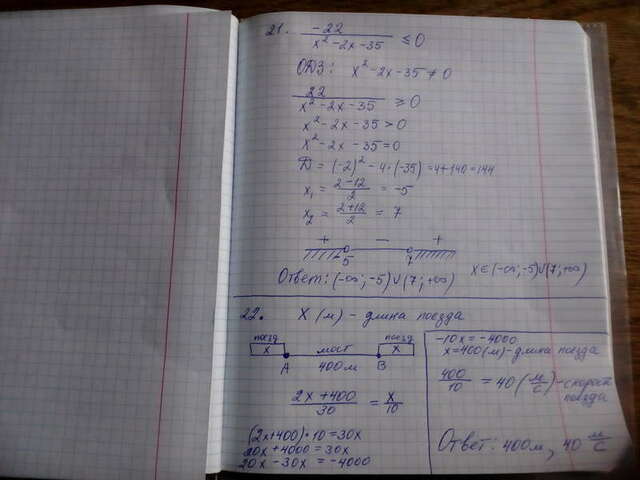 21. -22/(x²-2x-35) ≤ 0
ОДЗ: x²-2x-35 ≠ 0
22/(x²-2x-35) ≥ 0
x²-2x-35 > 0
x²-2x-35 = 0
Д = (-2)²-4·(-35) = 4+140 = 144
x₁ = (2-12)/2 = -5
x₂ = (2+12)/2 = 7
+ − +
-5 7
Ответ: (-∞; -5)∪(7; +∞) x∈(-∞; -5)∪(7; +∞)
22. X (м) - длина поезда
поезд поезд
x мост x
A 400м B
(2x+400)/30 = x/10
(2x+400)·10 = 30x
20x+4000 = 30x
20x-30x = -4000
-10x = -4000
x = 400(м) - длина поезда
400/10 = 40 (м/с) - скорост
поезда
Ответ: 400м, 40 м/с